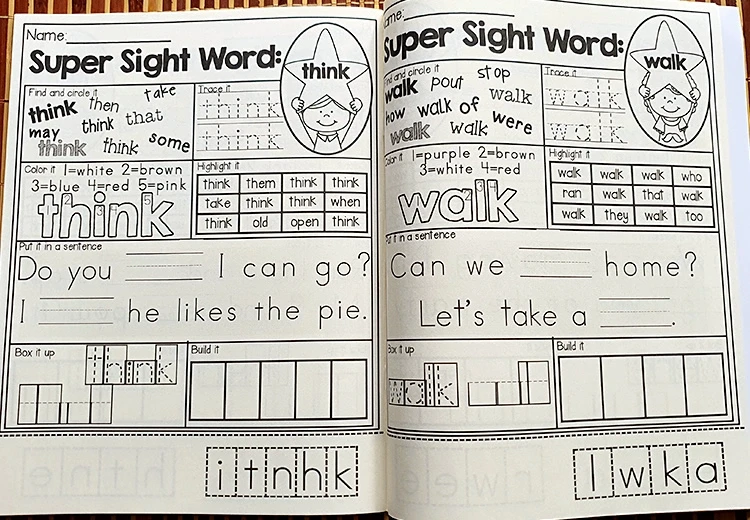 Name:
Super Sight Word:
think
Find and circle it
think then take
may think that
think think some
Trace it
think
think
Color it 1=white 2=brown
3=blue 4=red 5=pink
think
2 3 4 5
Highlight it
think them think think
take think think when
think old open think
Put it in a sentence
Do you I can go?
I he likes the pie.
Box it up
think
Build it
i t n h k
ame:
Super Sight Word:
walk
Find and circle it
walk pout stop
how walk of walk
walk walk were
Trace it
walk
walk
Color it 1=purple 2=brown
3=white 4=red
walk
2 3 4
Highlight it
walk walk walk who
ran walk that walk
walk they walk too
Put it in a sentence
Can we home?
Let's take a .
Box up
walk
Build it
l w k a